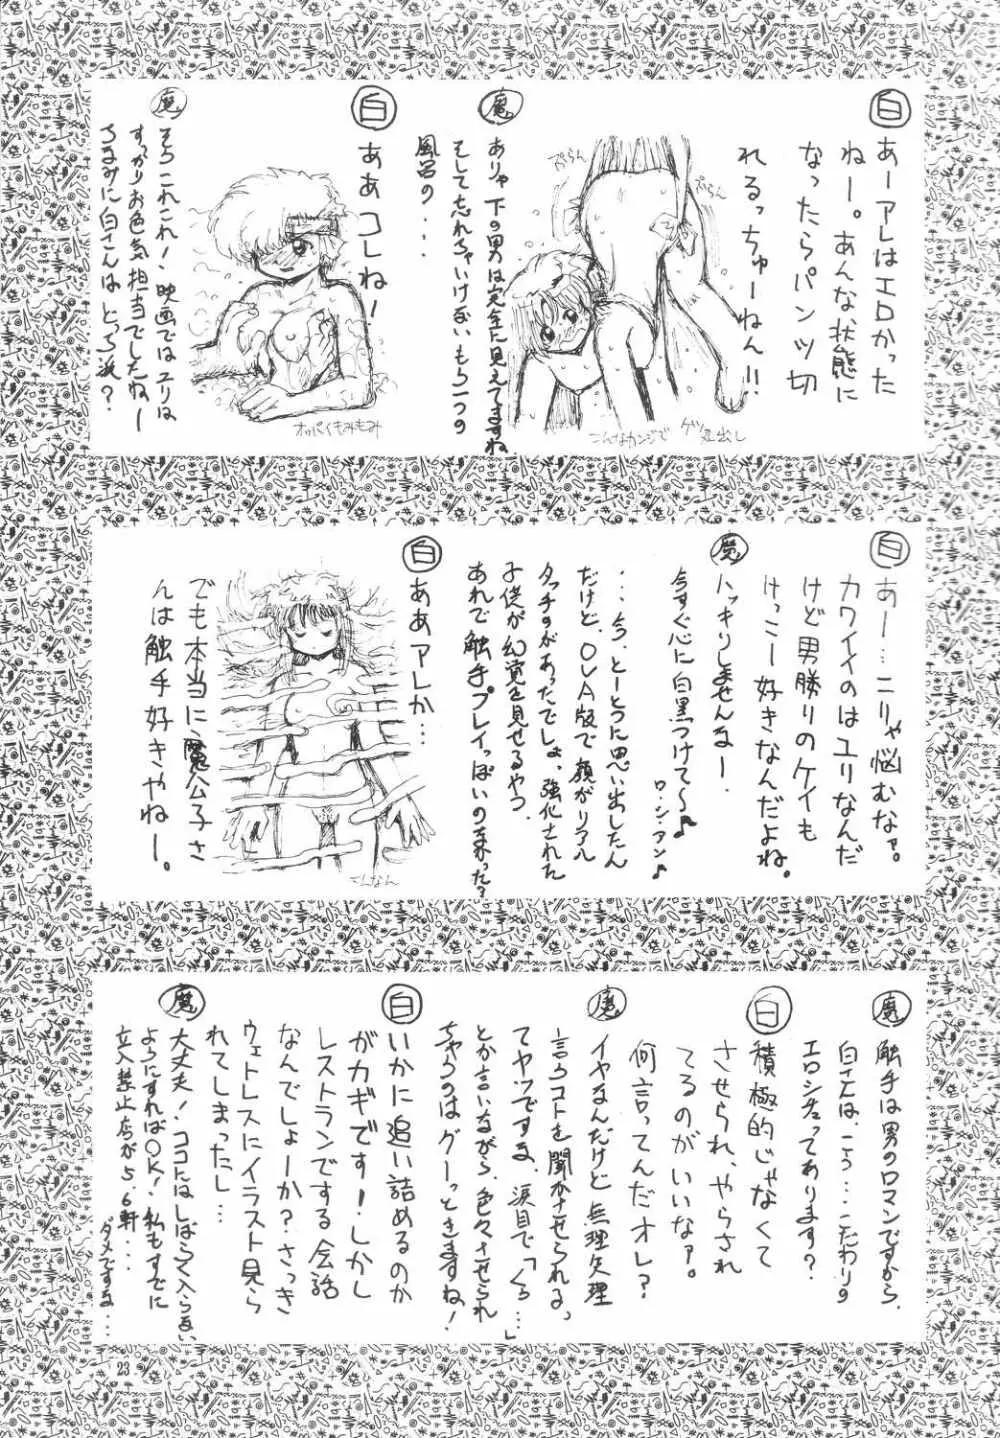 白 あーアレはエロかった
ねー。あんな状態に
なったらパンツ切
れるっちゅーねん!!
ぶらん
ぶらん
こんなカンジで ゲツ丸出し
魔 ありゃ下の男は完全に見えてますね
そして忘れちゃいけないもう一つの
風呂の・・・
白 ああコレねー
オッパイもみもみ
魔 そうこれこれ!映画ではユリは
すっかりお色気担当でしたねー
ちなみに白さんはどっち派?
白 あー…ニリャ悩むなァ。
カワイイのはユリなんだ
けど男勝りのケイも
けっこー好きなんだよね。
魔 ハッキリしませんなー。
今すぐ心に白黒つけて〜♪
ロ・シ・ア・ン♪
・・・今、とーとつに思い出したん
だけど、OVA版で顔がリアル
タッチのがあったでしょ、強化された
子供が幻覚を見せるやつ、
あれで触手プレイっぽいの来った?
白 ああアレか…
こんなん
でも本当に魔公子さ
んは触手好きやねー。
魔 触手は男のロマンですから。
白さんは、こう…こだわりの
エロシチュってあります?
白 積極的じゃなくて
させられ、やらされ
てるのがいいなァ。
何言ってんだオレ?
魔 イヤなんだけど無理矢理
言うコトを聞かせられるっ
てヤツですな、涙目で「くっ…」
とか言いながら、色々させられ
ちゃうのはグーっときますね!
白 いかに追い詰めるのか
がカギです!しかし
レストランでする会話
なんでしょーか?さっき
ウェトレスにイラスト見ら
れてしまったし…
魔 大丈夫!ココにはしばらく入らない
ようにすればOK!私もすでに
立入禁止店が5、6軒…
ダメですな…
23